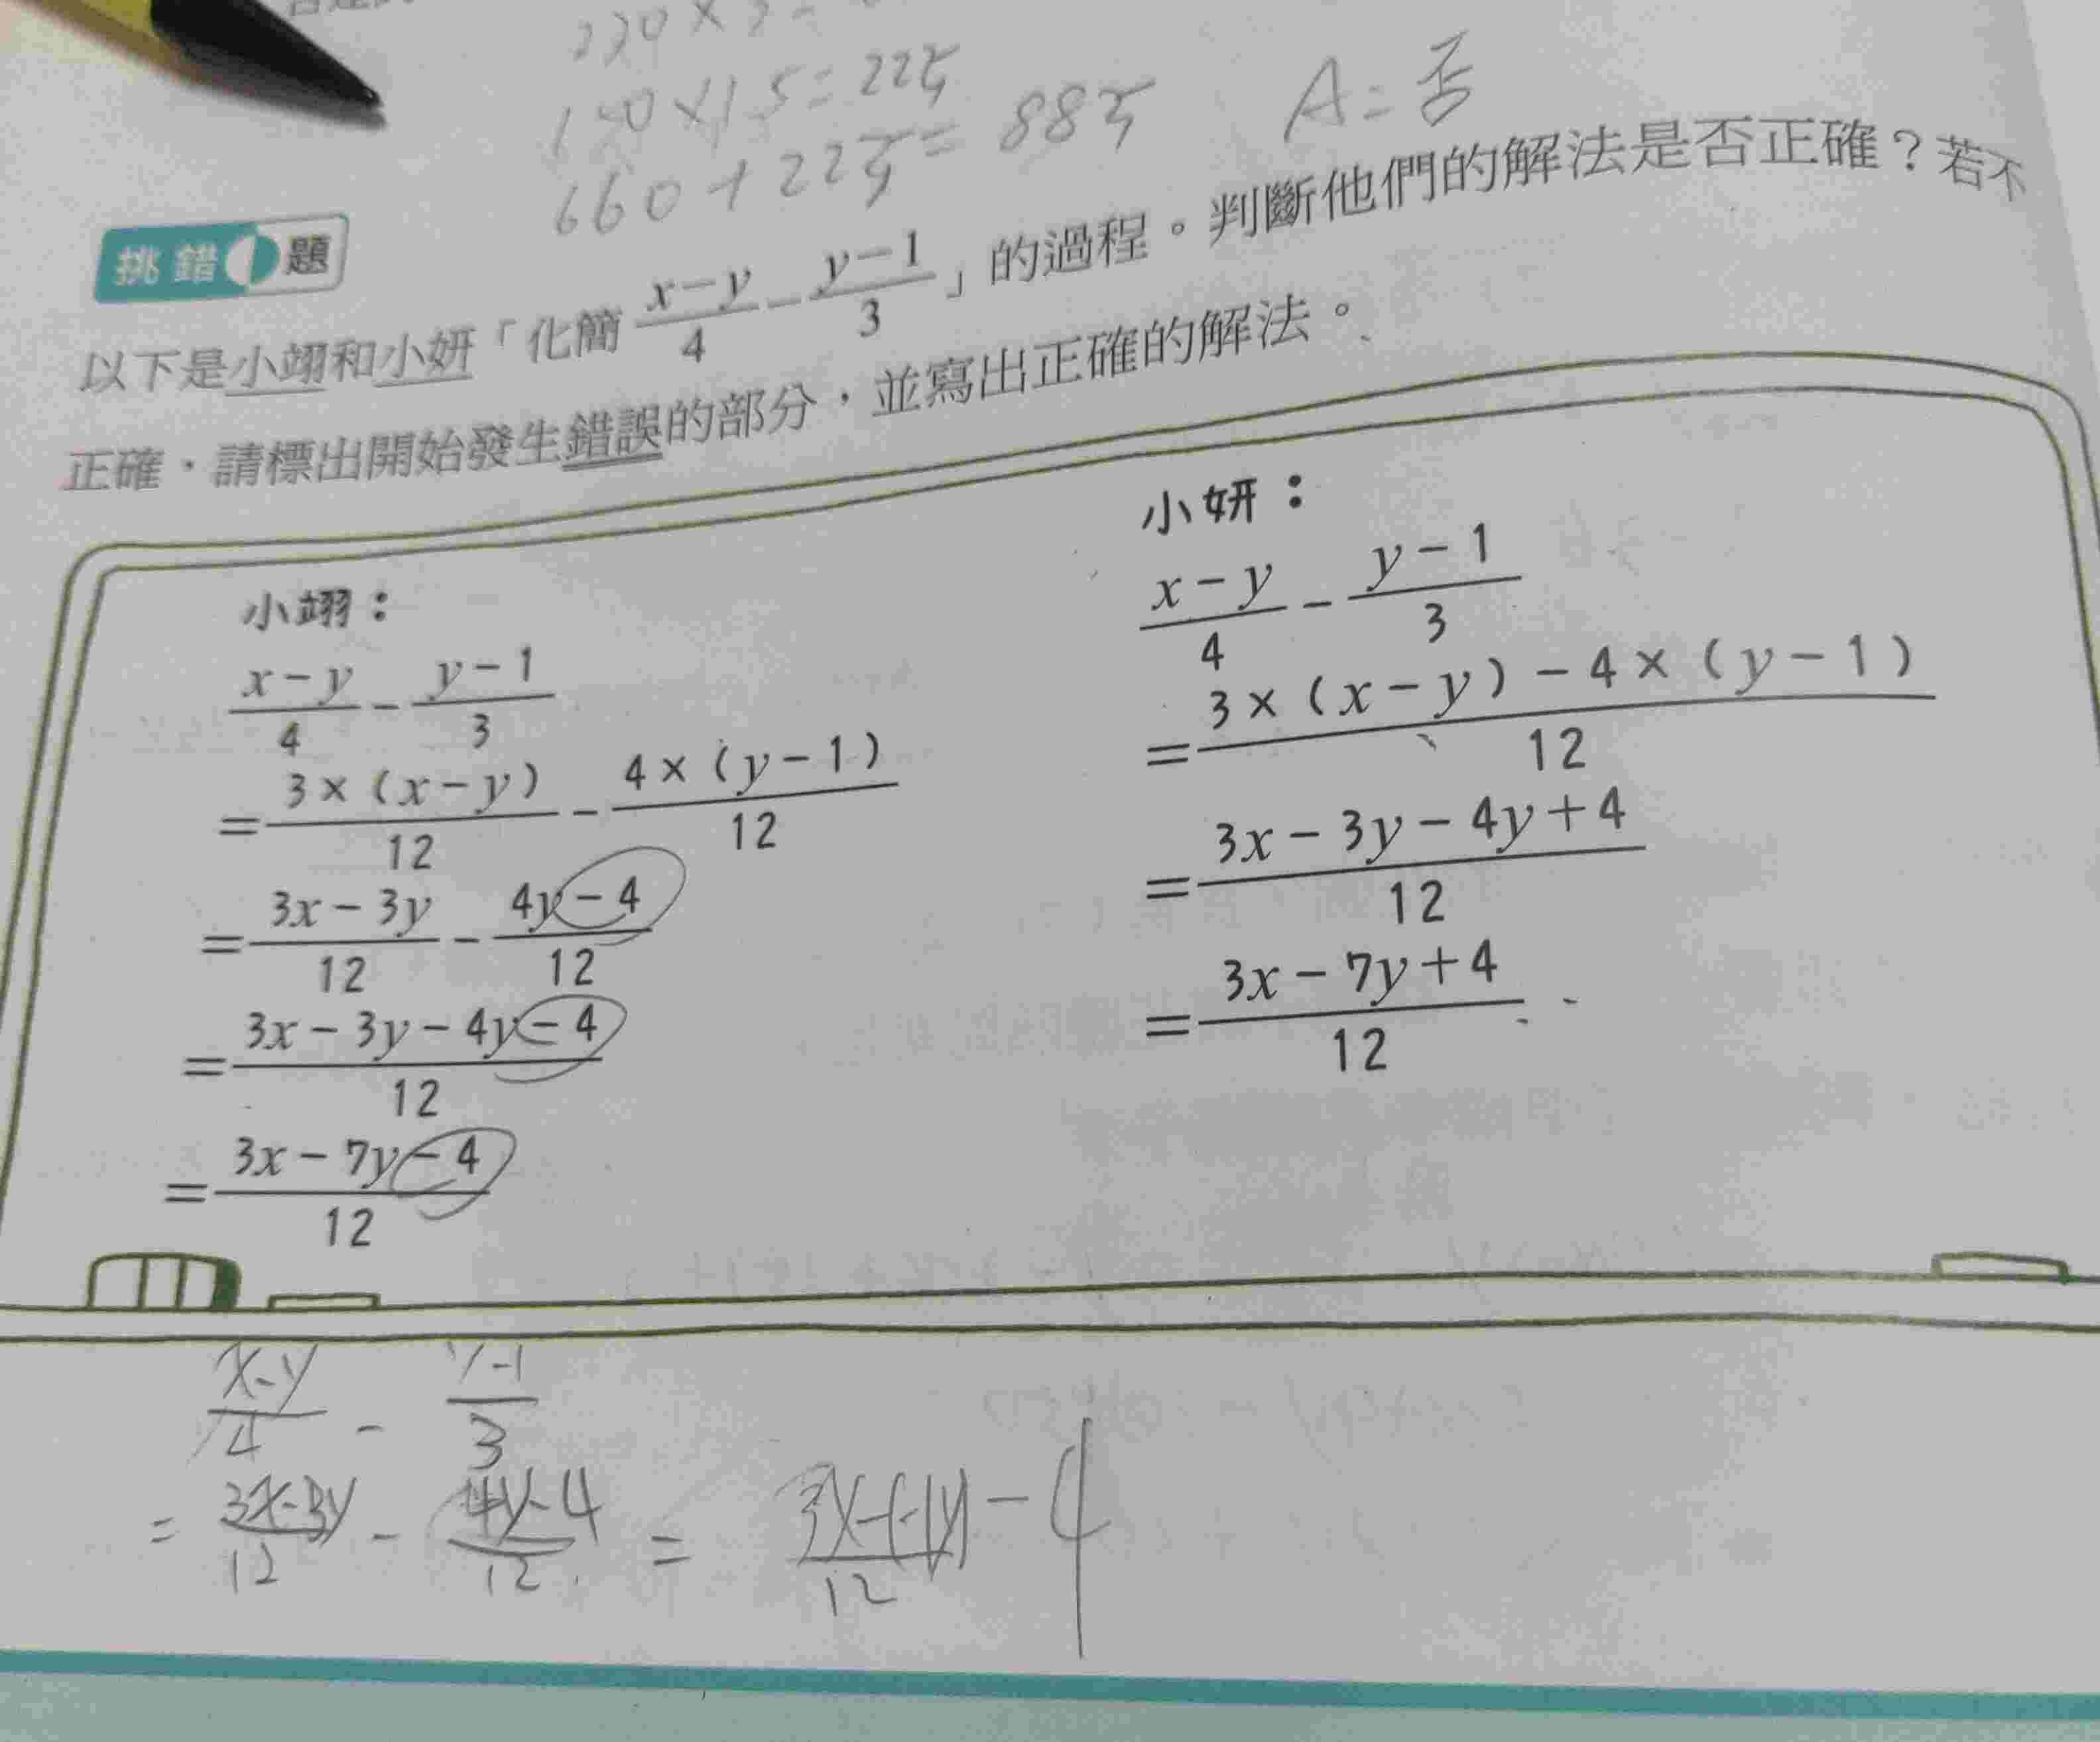 150×15=225
660+225=885
A=否
挑錯題
以下是小翊和小妍「化簡 x−y/4 − y−1/3」的過程。判斷他們的解法是否正確？若不
正確，請標出開始發生錯誤的部分，並寫出正確的解法。
小翊：
x−y/4 − y−1/3
= 3×(x−y)/12 − 4×(y−1)/12
= 3x−3y/12 − 4y−4/12
= 3x−3y−4y−4/12
= 3x−7y−4/12
小妍：
x−y/4 − y−1/3
= 3×(x−y)−4×(y−1)/12
= 3x−3y−4y+4/12
= 3x−7y+4/12
x-y/4 - y-1/3
= 3x-3y/12 - 4y-4/12 =